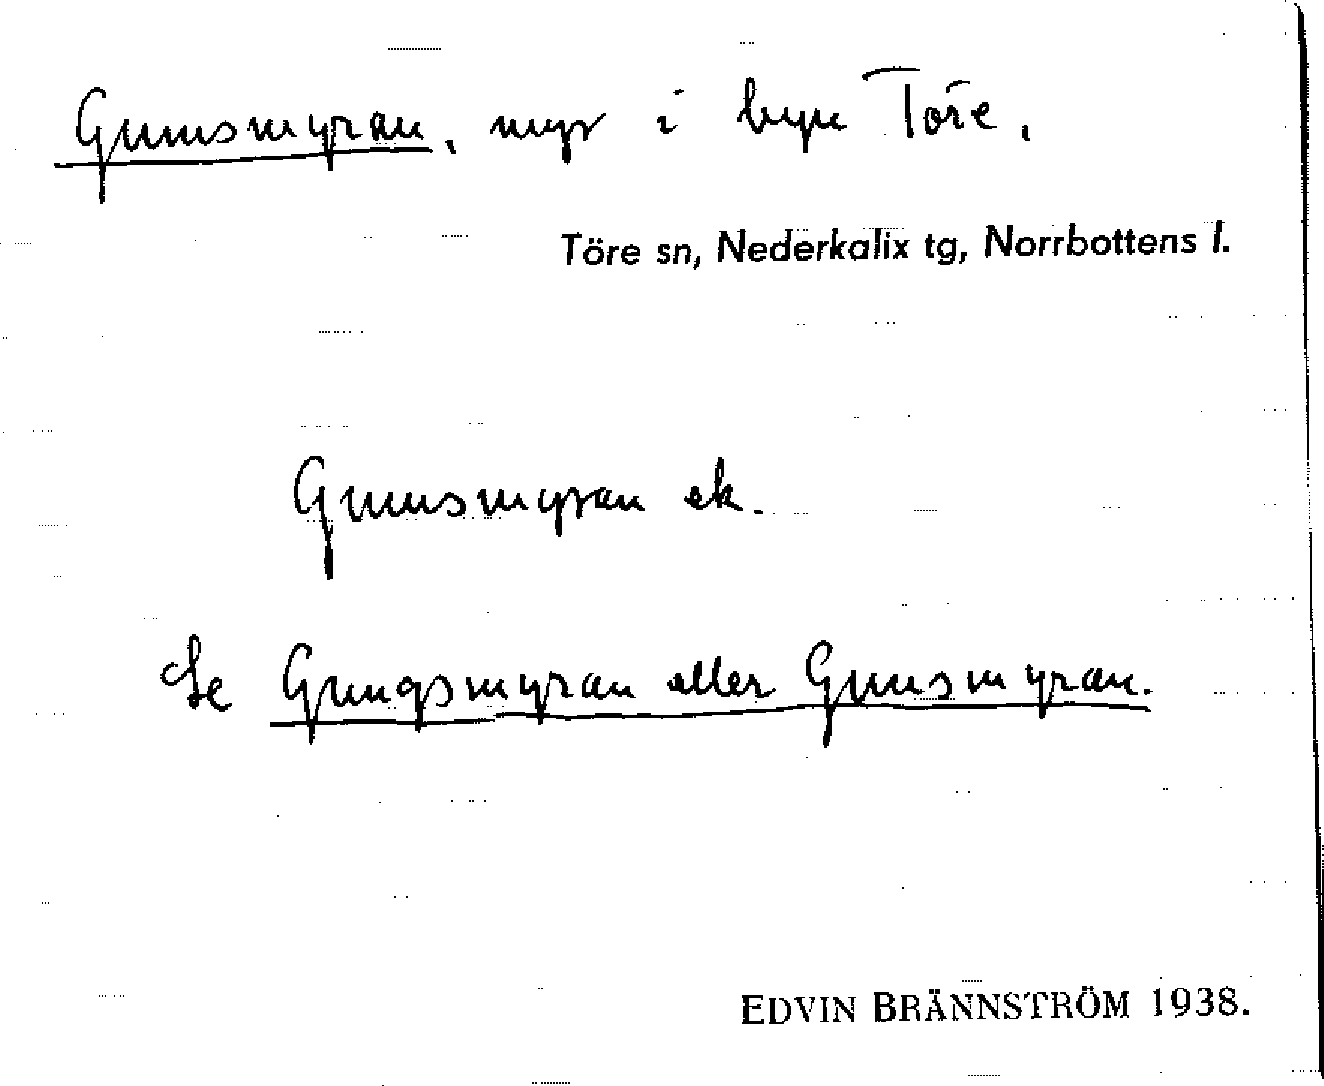 Gunsmyran, myr i byn Töre.
Töre sn, Nederkalix tg, Norrbottens l.
Gunsmyran ek.
Se Gungsmyran eller Gunsmyran.
EDVIN BRÄNNSTRÖM 1938.